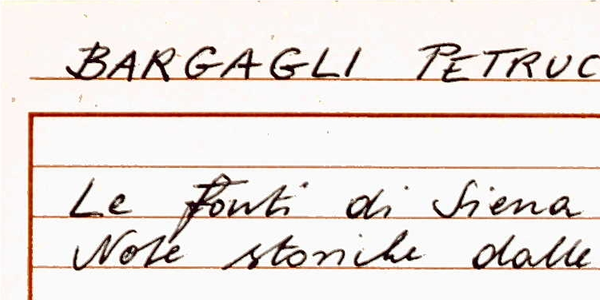 BARGAGLI PETRUC
Le fonti di Siena
Note storiche dalle